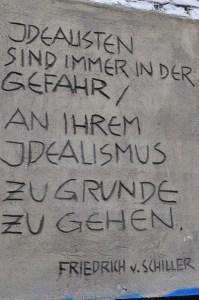 JDEALISTEN
SIND IMMER IN DER
GEFAHR/
AN IHREM
JDEALISMUS
ZU GRUNDE
ZU GEHEN.
FRIEDRICH v. SCHILLER